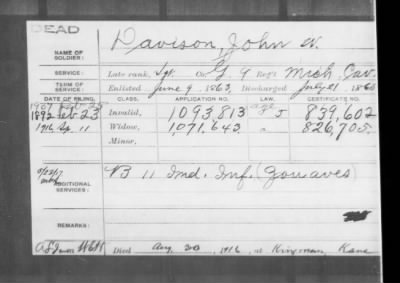 DEAD
NAME OF SOLDIER: Davison, John W.
SERVICE: Late rank, Sgt. Co. G, 9 Reg't Mich. Cav.
TERM OF SERVICE: Enlisted June 9, 1863, Discharged July 21, 1865
DATE OF FILING. CLASS. APPLICATION NO. LAW. CERTIFICATE NO.
1907
1892 Feb 23 Invalid, 1,093,813 age 839,602
1916 Sep. 11 Widow, 1,071,643 " 826,705
Minor,
ADDITIONAL SERVICES: B 11 Ind. Inf. (Zouaves)
REMARKS:
Died Aug 30, 1916, at Kingman, Kans